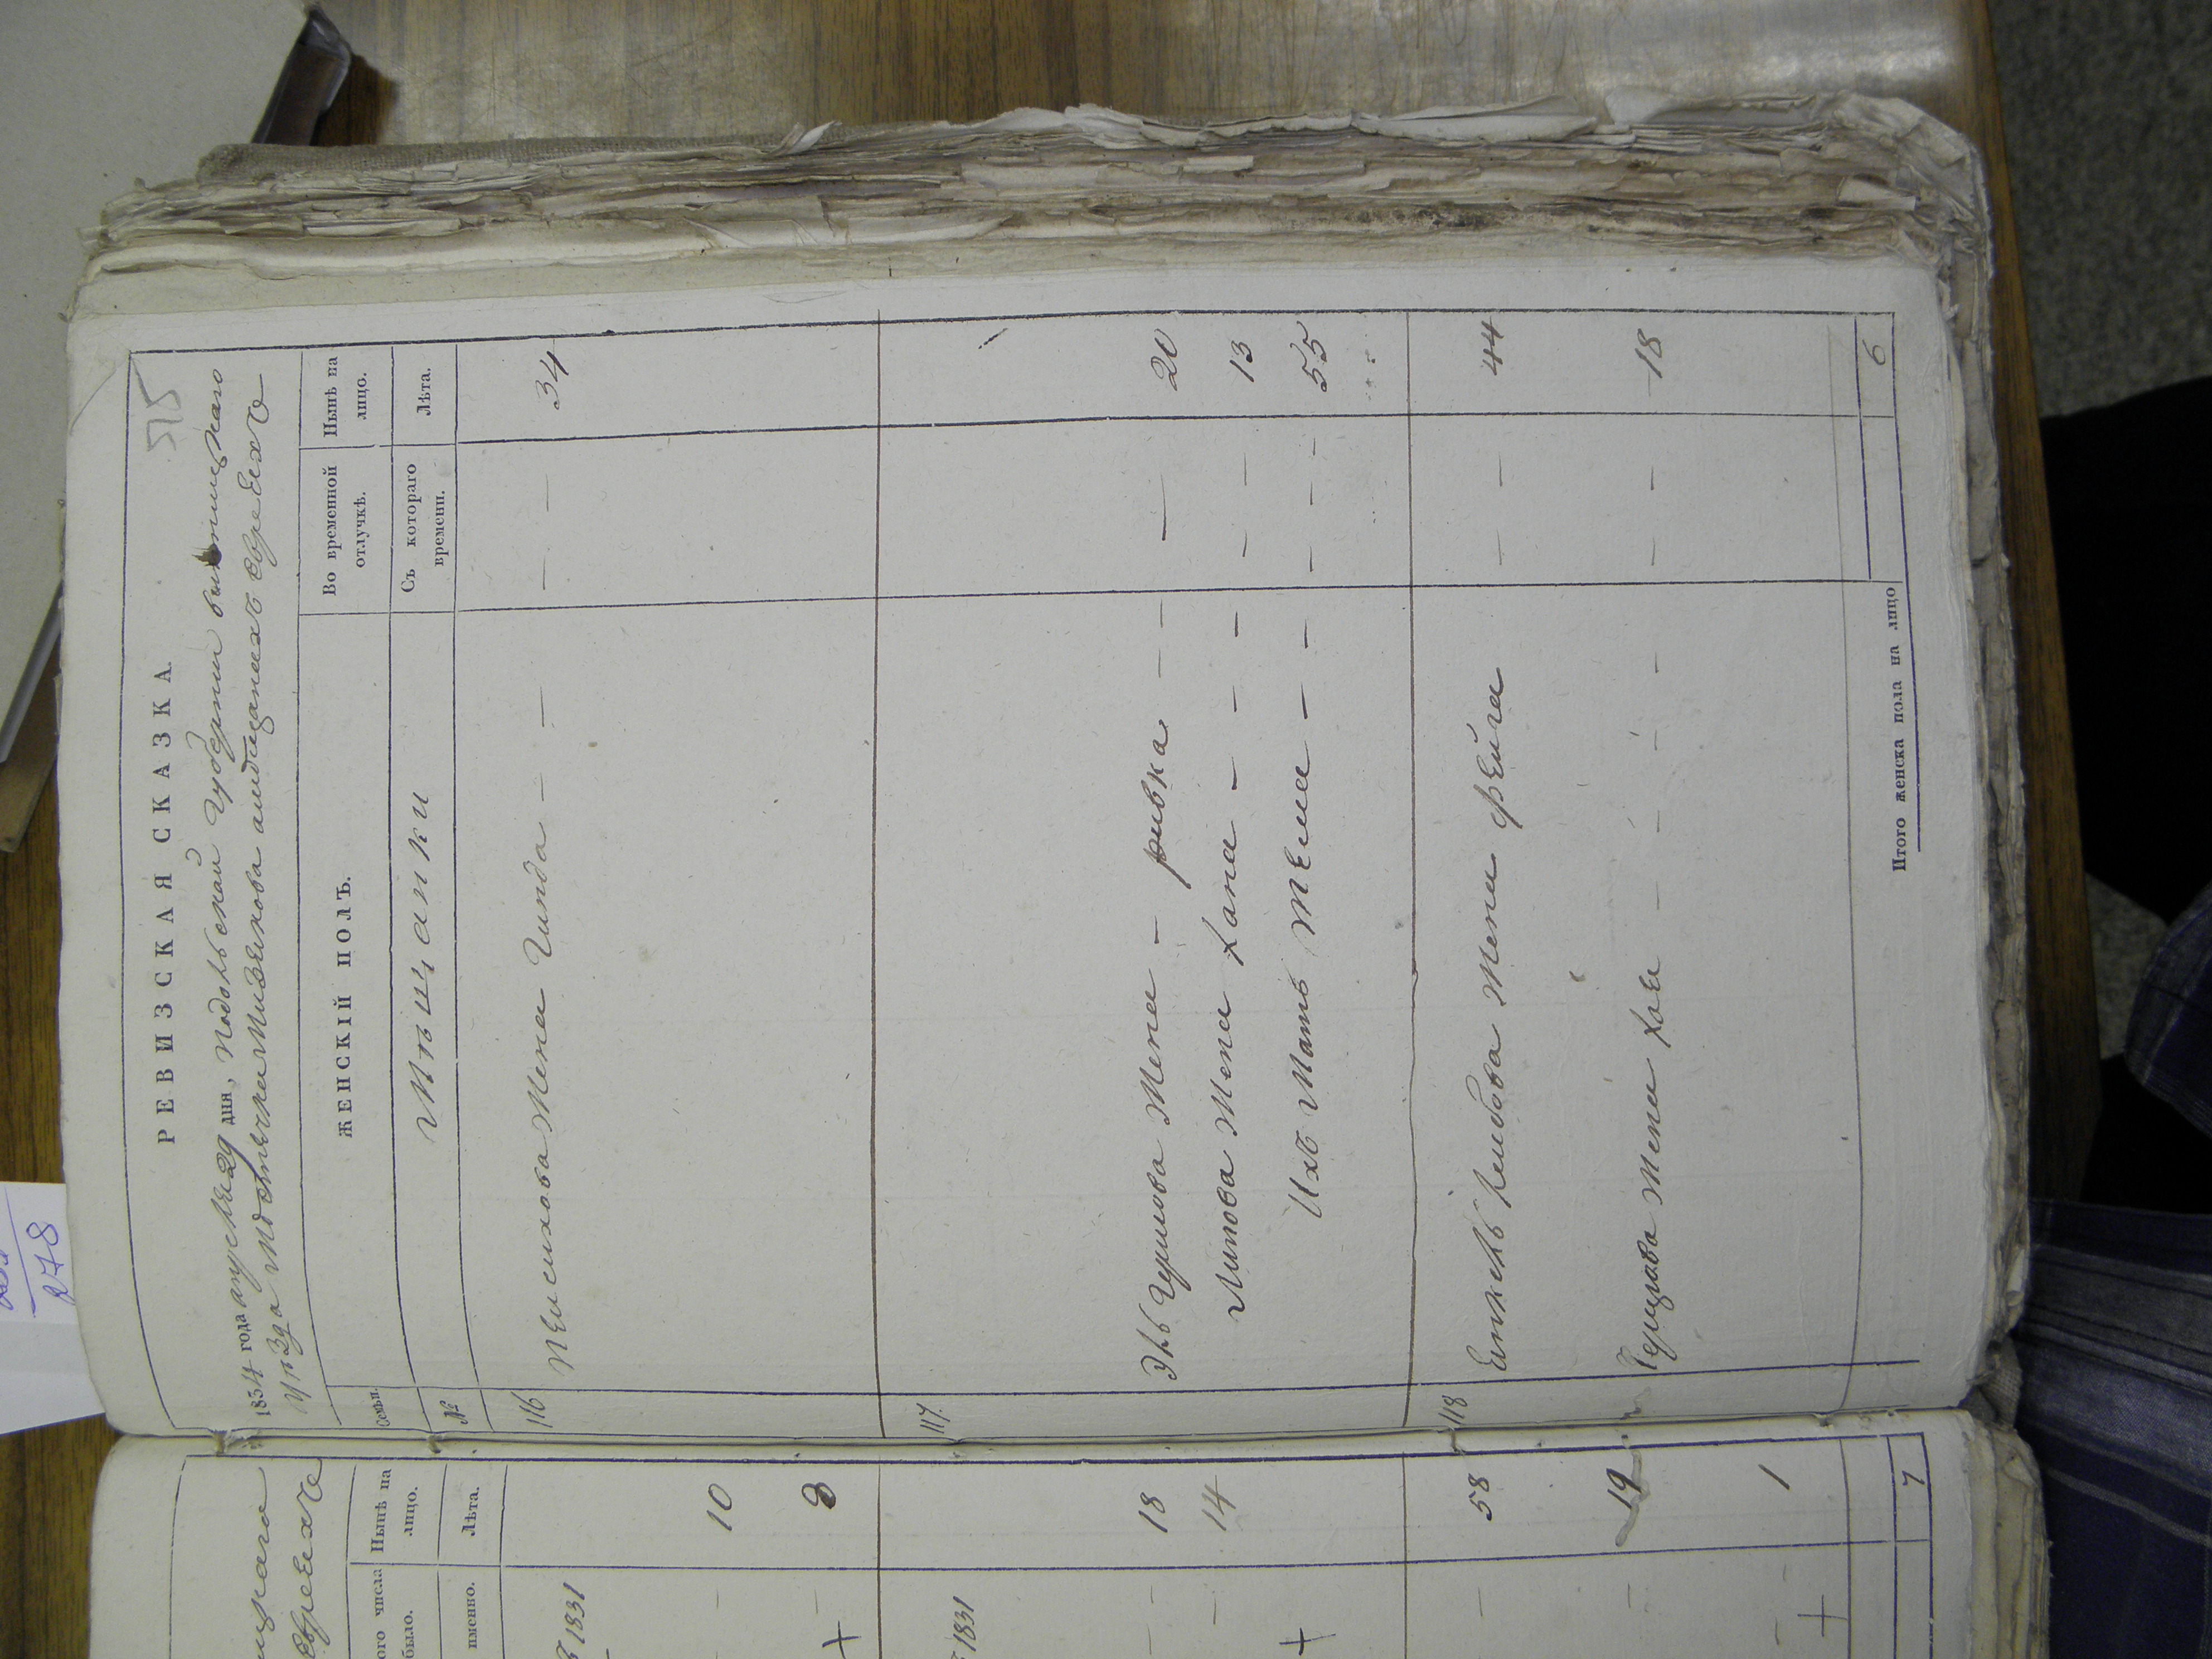 278
515
РЕВИЗСКАЯ СКАЗКА.
1834 года апреля 29 дня, Подольской Губернии винницкаго
уѣзда местечка Мизякова о мещанахъ евреехъ
Семьи.
ЖЕНСКІЙ ПОЛЪ.
Во временной отлучкѣ.
Нынѣ на лицо.
№
Мѣщанки
Съ котораго времени.
Лѣта.
116 Пейсихова Жена Гинда — — — — 34
117.
Жена — ривка — — — 20
Жена Хана — — — — — 13
Ихъ Мать — — — — — 55
118 Лейбова Жена фейга — — 44
Гершкова Жена Хая — — — — — — 18
Итого женска пола на лицо 6
ицкаго
евреехъ
ого числа было.
Нынѣ на лицо.
именно.
Лѣта.
1831
— 10
+ — 3
1831
— — 18
— 14
+
— 58
— 19
— — 1
+
7